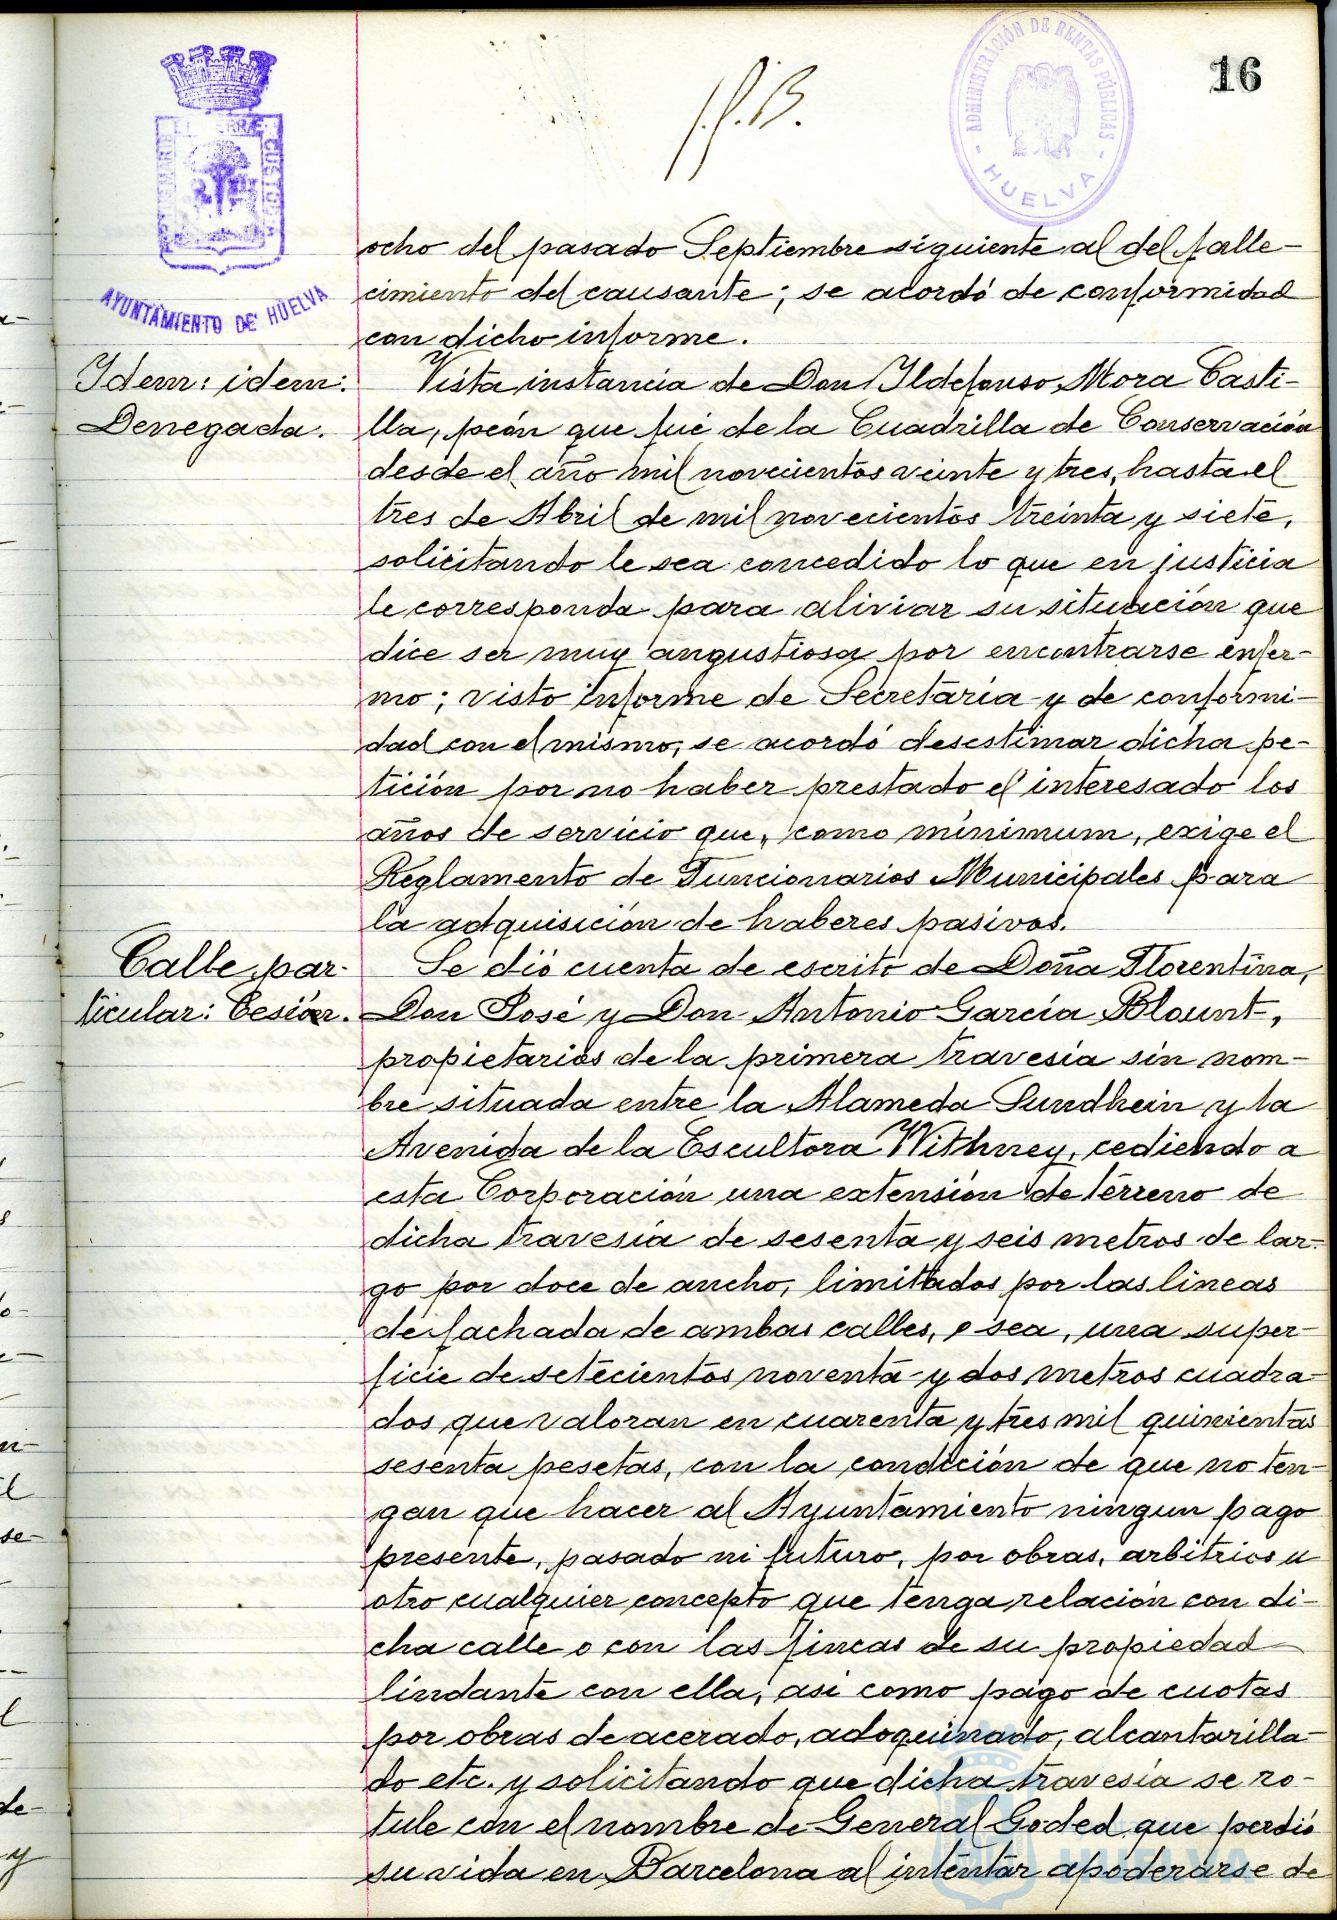 16
ADMINISTRACIÓN DE RENTAS PÚBLICAS
- HUELVA -
AYUNTAMIENTO DE HUELVA
ocho del pasado Septiembre siguiente al del falle-
cimiento del causante; se acordó de conformidad
con dicho informe.
Idem: idem:
Denegada.
Vista instancia de Don Ildefonso Mora Casti-
lla, peón que fué de la Cuadrilla de Conservación
desde el año mil novecientos veinte y tres, hasta el
tres de Abril de mil novecientos treinta y siete,
solicitando le sea concedido lo que en justicia
le corresponda para aliviar su situación que
dice ser muy angustiosa por encontrarse enfer-
mo; visto informe de Secretaría y de conformi-
dad con el mismo, se acordó desestimar dicha pe-
tición por no haber prestado el interesado los
años de servicio que, como mínimum, exige el
Reglamento de Funcionarios Municipales para
la adquisición de haberes pasivos.
Calle par-
ticular: Cesión.
Se dió cuenta de escrito de Doña Florentina,
Don José y Don Antonio García Blount,
propietarios de la primera travesía sin nom-
bre situada entre la Alameda Sundhein y la
Avenida de la Escultora Withney, cediendo a
esta Corporación una extensión de terreno de
dicha travesía de sesenta y seis metros de lar-
go por doce de ancho, limitados por las lineas
de fachada de ambas calles, o sea, una super-
ficie de setecientos noventa y dos metros cuadra-
dos que valoran en cuarenta y tres mil quinientas
sesenta pesetas, con la condición de que no ten-
gan que hacer al Ayuntamiento ningun pago
presente, pasado ni futuro, por obras, arbitrios u
otro cualquier concepto que tenga relación con di-
cha calle o con las fincas de su propiedad
lindante con ella, asi como pago de cuotas
por obras de acerado, adoquinado, alcantarilla-
do etc. y solicitando que dicha travesía se ro-
tule con el nombre de General Goded que perdió
su vida en Barcelona al intentar apoderarse de
HUELVA